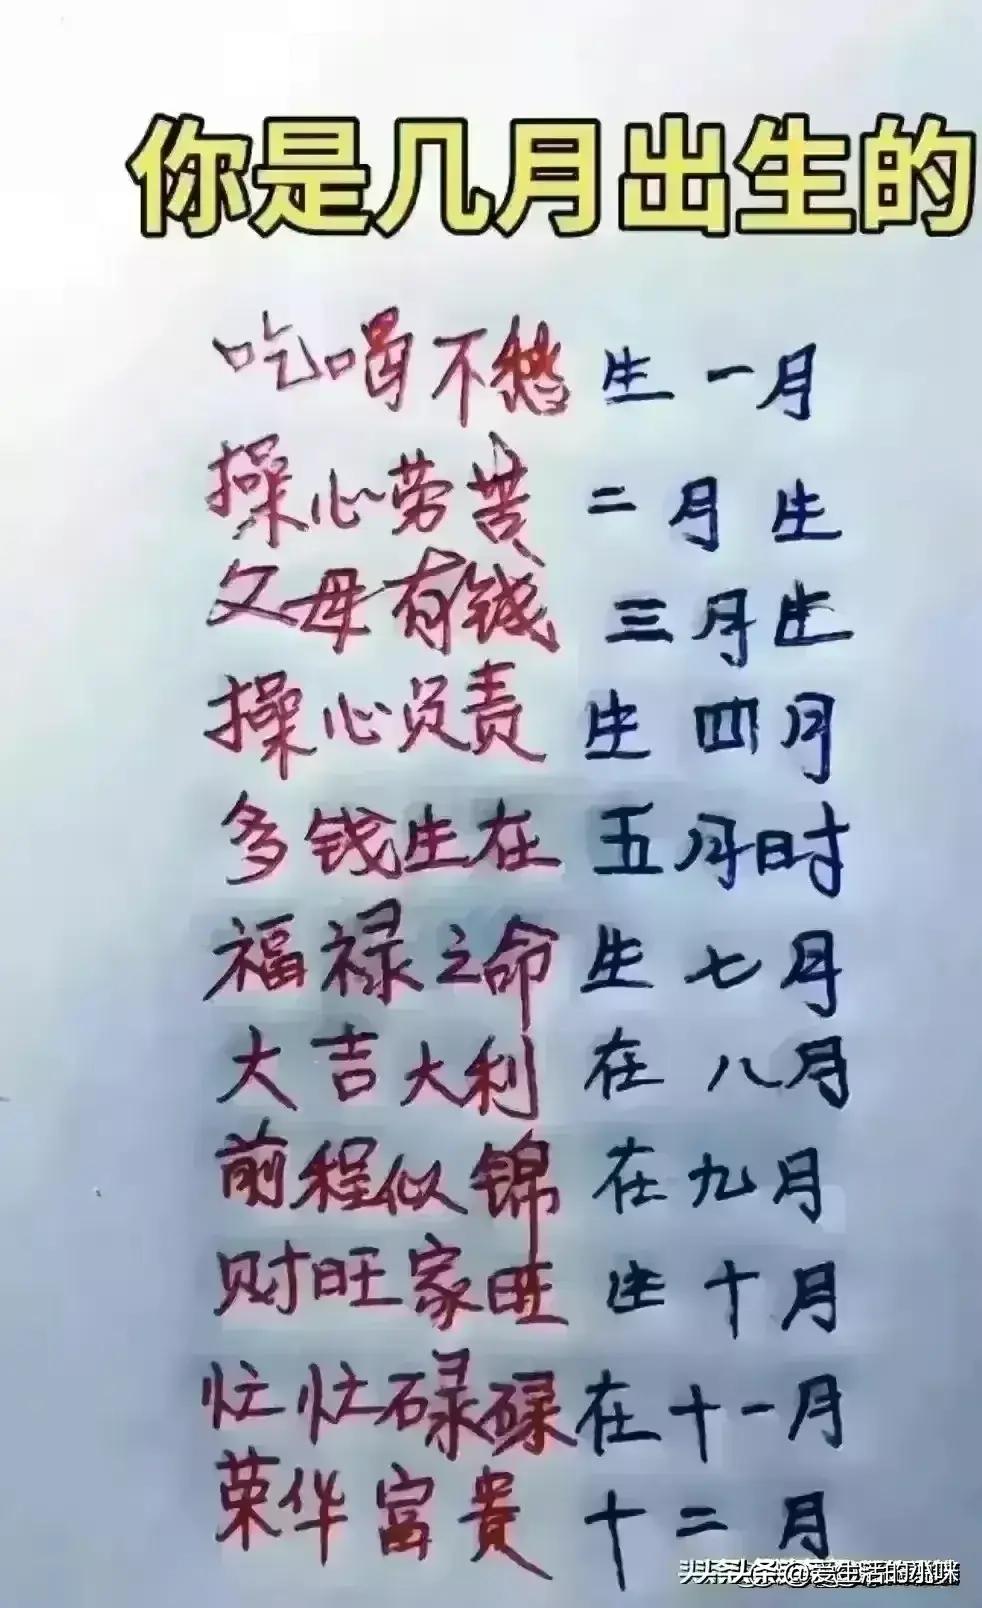 你是几月出生的
吃喝不愁 生一月
操心劳苦 二月生
父母有钱 三月生
操心负责 生四月
多钱生在 五月时
福禄之命 生七月
大吉大利 在八月
前程似锦 在九月
财旺家旺 生十月
忙忙碌碌 在十一月
荣华富贵 十二月
@爱生活的小咪